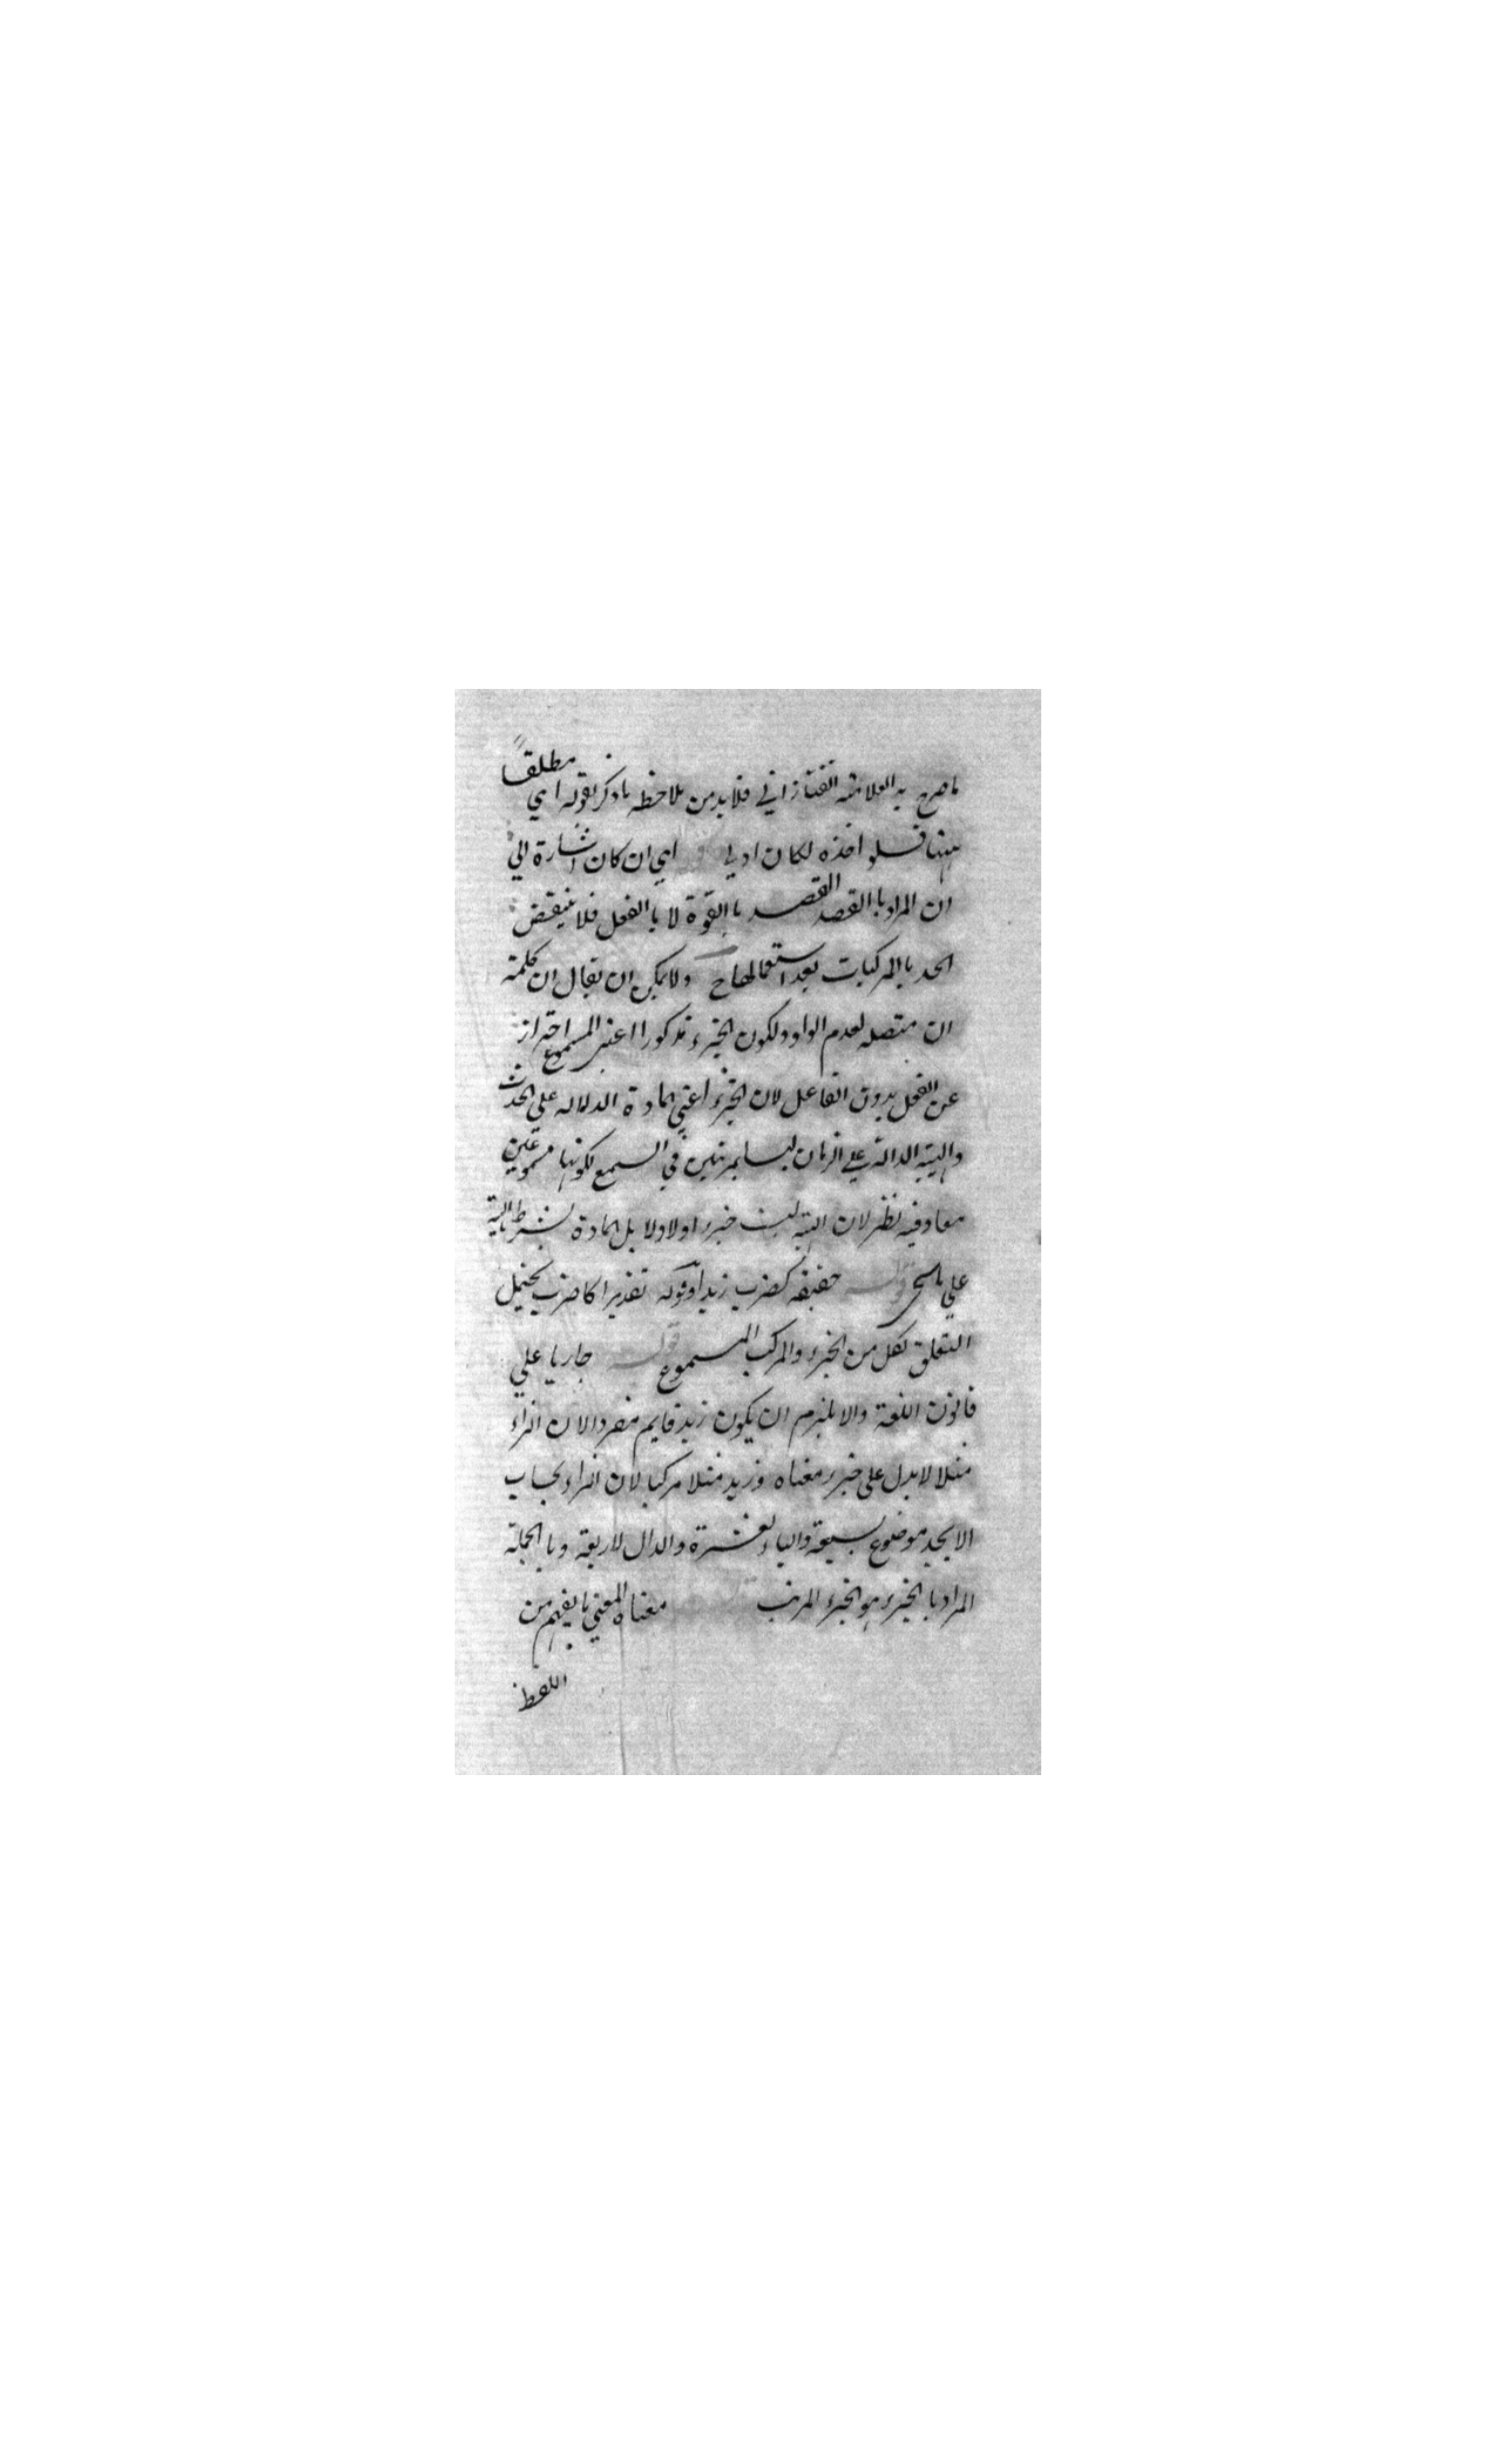 ما صرح به العلامة التفتازاني فلا بد من ملاحظه ما ذكر بقوله اي مطلقاً
ههنا فلو اخذه لكان اولي اي ان كان اشارة الي
ان المراد باالقصد القصد باالقوة لا باالفعل فلا ينتقض
الحد باالمركبات بعد استعمالها ح ولا يمكن ان يقال ان كلمة
ان متصله لعدم الواو ولكون الجزء مذكورا اعني المسموع احتراز
عن الفعل بدون الفاعل لان الجزء اعني المادة الدلاله علي الحدث
والهيئة الدالة علي الزمان ليسا بمرتبين في السمع لكونهما مسموعين
معا وفيه نظر لان الهيئة ليست جزء اولا ولا بل المادة بشرط الهيئة
علي ما سيجي قوله حقيقة كضرب زيد او قوله تقديرا كاضرب يحتمل
التعلق لكل من الجزء والمركب المسموع قوله جاريا علي
قانون اللغة والا يلزم ان يكون زيد قايم مفردا لان الزاء
مثلا لا يدل علي جزء معناه وزيد مثلا مركبا لان الزاء بحساب
الابجد موضوع لسبعة والياء لعشرة والدال لاربعة وباالجملة
المراد باالجزء هو الجزء المرتب معناه المعني ما يفهم من
اللفظ